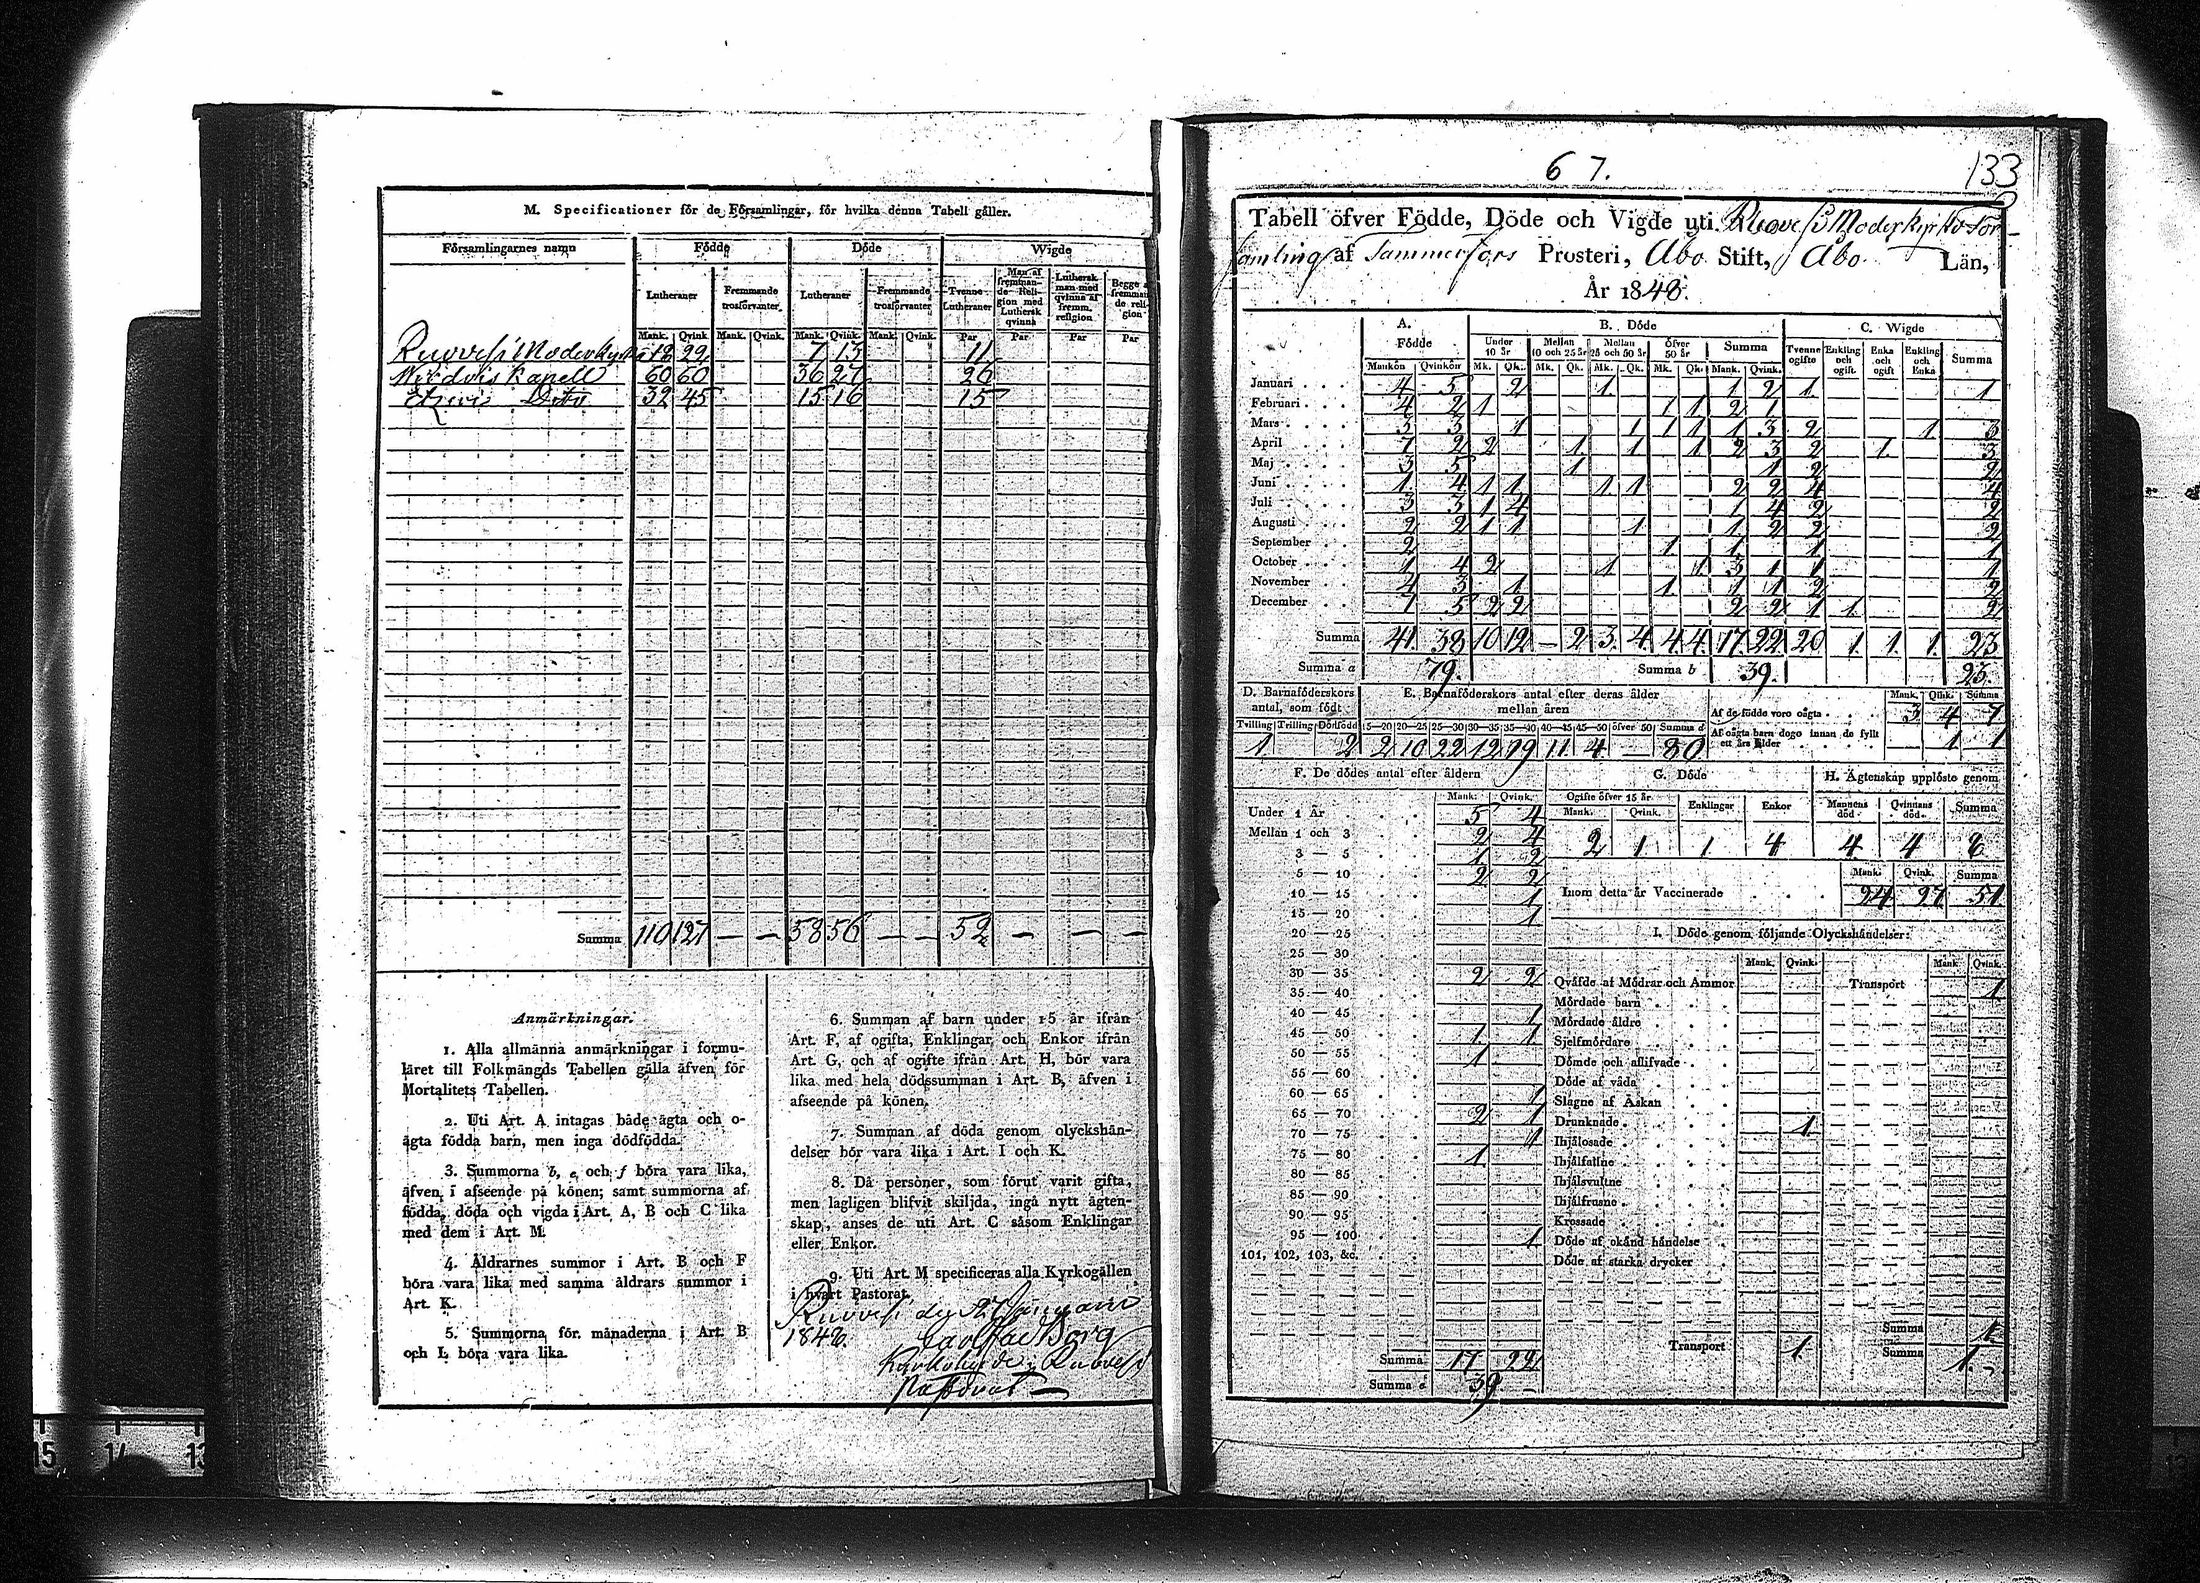 M. Specificationer för de Församlingar, för hvilka denna Tabell gäller.
Församlingarnes namn Födde Döde Wigde
Lutheraner Fremmande trosförvanter Lutheraner Fremmande trosförvanter Tvenne Lutheraner Man af fremmande Religion med Luthersk qvinna Luthersk man med qvinna af fremm. religion Begge fremmande religion
Mank. Qvink. Mank. Qvink. Mank. Qvink. Mank. Qvink. Par Par Par Par
Ruovesi Moderkyrka 18 22 7 13 11
Kapell 60 60 36 27 26
Ditto 32 45 15 16 15
Summa 110 127 — — 58 56 — — 52 — — —
Anmärkningar.
1. Alla allmänna anmärkningar i formu-
läret till Folkmängds Tabellen gälla äfven för
Mortalitets Tabellen.
2. Uti Art. A intagas både ägta och o-
ägta födda barn, men inga dödfödda.
3. Summorna b, e och f böra vara lika,
äfven i afseende på könen; samt summorna af
födda, döda och vigda i Art. A, B och C lika
med dem i Art. M.
4. Åldrarnes summor i Art. B och F
böra vara lika med samma åldrars summor i
Art. K.
5. Summorna för månaderna i Art. B
och L böra vara lika.
6. Summan af barn under 15 år ifrån
Art. F, af ogifta, Enklingar och Enkor ifrån
Art. G, och af ogifte ifrån Art. H, bör vara
lika med hela dödssumman i Art. B, äfven i
afseende på könen.
7. Summan af döda genom olyckshän-
delser bör vara lika i Art. I och K.
8. Då personer, som förut varit gifta,
men lagligen blifvit skiljda, ingå nytt ägten-
skap, anses de uti Art. C såsom Enklingar
eller Enkor.
9. Uti Art. M specificeras alla Kyrkogällen
i hvart Pastorat.
Ruovesi
Borg
Ruovesi
Pastorat —
67.
133
Tabell öfver Födde, Döde och Vigde uti Ruovesi Moderkyrko för-
samling af Tammerfors Prosteri, Åbo Stift, Åbo Län,
År 1848.
A. Födde B. Döde C. Wigde
Under 10 år Mellan 10 och 25 år Mellan 25 och 50 år öfver 50 år Summa Tvenne ogifte Enkling och ogift Enka och ogift Enkling och Enka Summa
Mankön Qvinkön Mk. Qk. Mk. Qk. Mk. Qk. Mk. Qk. Mank. Qvink.
Januari 4 5 2 1 1 2 1 1
Februari 4 2 1 1 1 2 1
Mars 3 1 1 1 1 1 3 2 1 3
April 7 2 2 1 1 1 2 3 2 1 3
Maj 3 5 1 1 2 2
Juni 1 4 1 1 1 1 2 2 4 4
Juli 3 3 1 4 1 4 2 2
Augusti 2 2 1 1 1 1 2 2 2
September 2 1 1 1 1
October 1 4 2 1 1 3 1 1 1
November 3 1 1 1 1 2 2
December 5 2 2 2 2 1 1 2
Summa 41 38 10 12 — 2 3 4 4 4 17 22 20 1 1 1 23
Summa a 79. Summa b 39. 23.
D. Barnaföderskors antal, som födt E. Barnaföderskors antal efter deras ålder mellan åren
Mank. Qvink. Summa
Tvilling Trilling Dödfödd 15—20 20—25 25—30 30—35 35—40 40—45 45—50 öfver 50 Summa d
1 2 2 10 22 12 19 11 4 — 80
Af de födde voro oägta 3 4 7
Af oägta barn dogo innan de fyllt ett års ålder 1 1
F. De dödes antal efter åldern
Mank. Qvink.
Under 1 År 5 4
Mellan 1 och 3 2 4
3 — 5 1 2
5 — 10 2 2
10 — 15 1
15 — 20 1
20 — 25
25 — 30
30 — 35 2 2
35 — 40
40 — 45 1
45 — 50 1 1
50 — 55 1
55 — 60
60 — 65 1
65 — 70 2 1
70 — 75 1
75 — 80 1
80 — 85
85 — 90
90 — 95
95 — 100 1
101, 102, 103, &c.
Summa 17 22
Summa e 39
G. Döde
Ogifte öfver 15 år Enklingar Enkor
Mank. Qvink.
2 1 1 4
H. Ägtenskap upplöste genom
Mannens död Qvinnans död Summa
4 4 8
Mank. Qvink. Summa
Inom detta år Vaccinerade 24 27 51
I. Döde genom följande Olyckshändelser:
Mank. Qvink. Mank. Qvink.
Qväfde af Mödrar och Ammor Transport 1
Mördade barn
Mördade äldre
Sjelfmördare
Dömde och aflifvade
Döde af våda
Slagne af Åskan
Drunknade 1
Ihjälosade
Ihjälfallne
Ihjälsvultne
Ihjälfrusne
Krossade
Döde af okänd händelse
Döde af starka drycker
Summa 1
Transport 1. Summa 1.
15 14 13